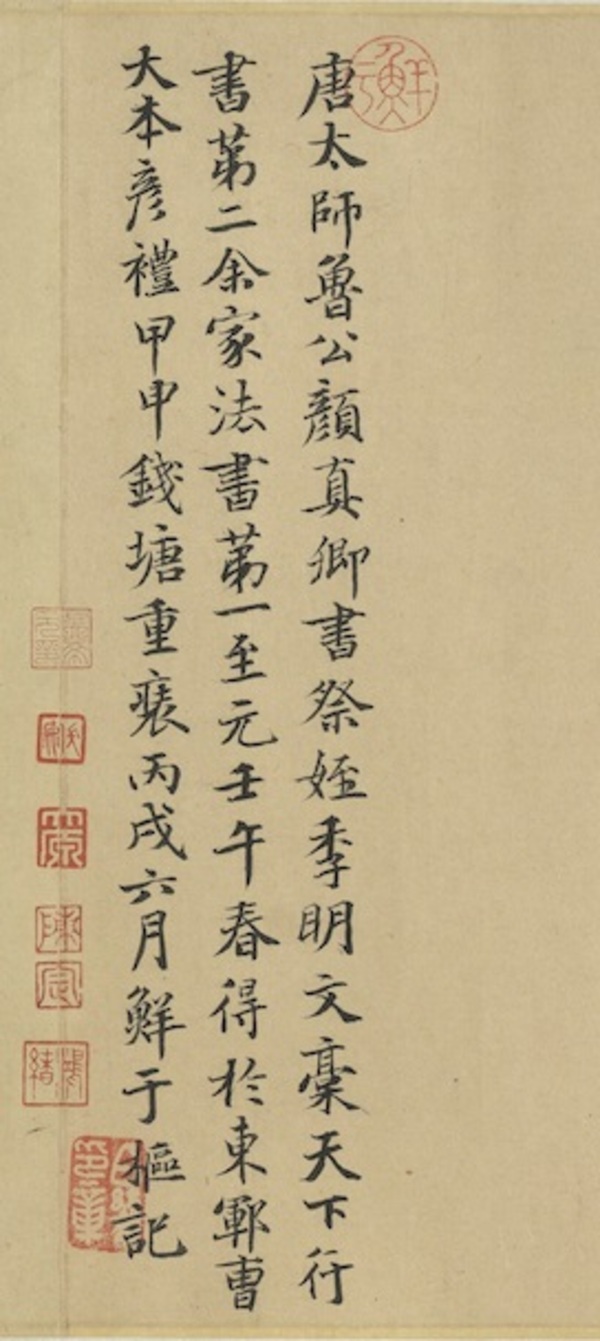 唐太師魯公顏真卿書祭姪季明文稾天下行
書第二余家法書第一至元壬午春得於東鄆曹
大本彥禮甲申錢塘重裝丙戌六月鮮于樞記
鮮